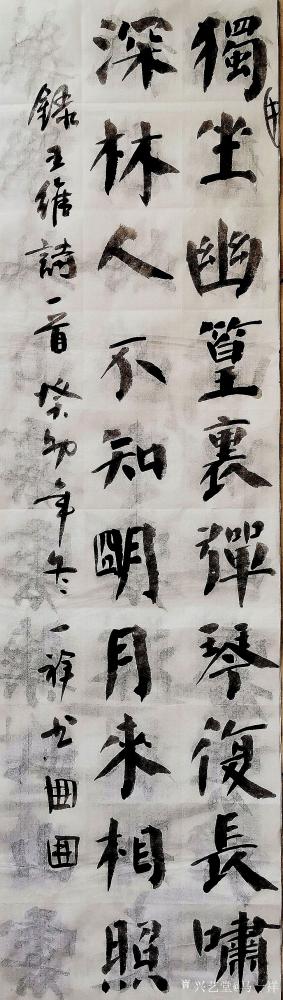 獨坐幽篁裏彈琴復長嘯
深林人不知明月來相照
錄王維詩一首癸卯年冬一祥書
兴艺堂@马一祥